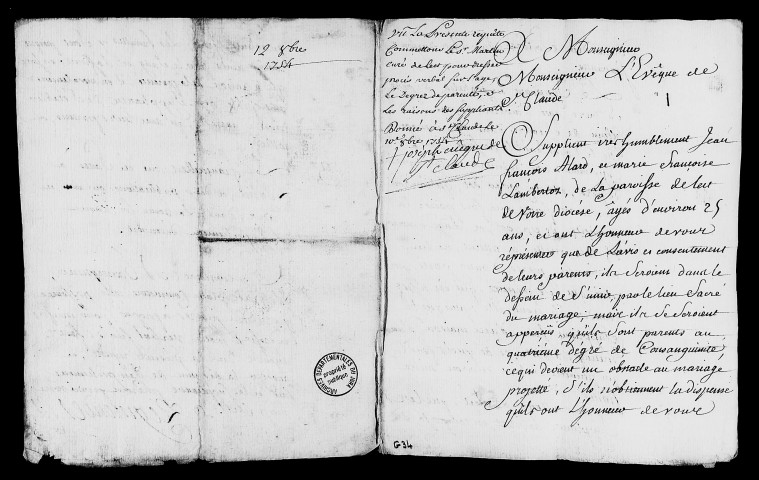 12 8bre
1754
ARCHIVES DÉPARTEMENTALES DU JURA
propriété
publique
Vu La Presente requête
Commettons Le Sr Martin
curé de Lect pour dresser
procès verbal sur l'age,
Le Degrez de parenté, et
Les raisons des suppliants
Donné à St Claude le
10e 8bre 1754
† Joseph évêque de
St Claude
A Monseigneur
Monseigneur L'Evêque de
St Claude
1
Supplient très humblement Jean
françois Alard, et marie françoise
Lambertoz, de La paroisse de Lect
de Votre diocèse, âgés d'environ 25
ans, et ont L'honneur de vous
représenter que de L'avis et consentement
de leurs parents, ils seroient dans le
dessein de S'unir par le lien Sacré
du mariage; mais ils se seroient
apperçus qu'ils sont parents au
quatrième dégré de Consanguinité,
ce qui devient un obstacle au mariage
projetté, S'ils n'obtiennent la dispense
qu'ils ont L'honneur de vous
G34